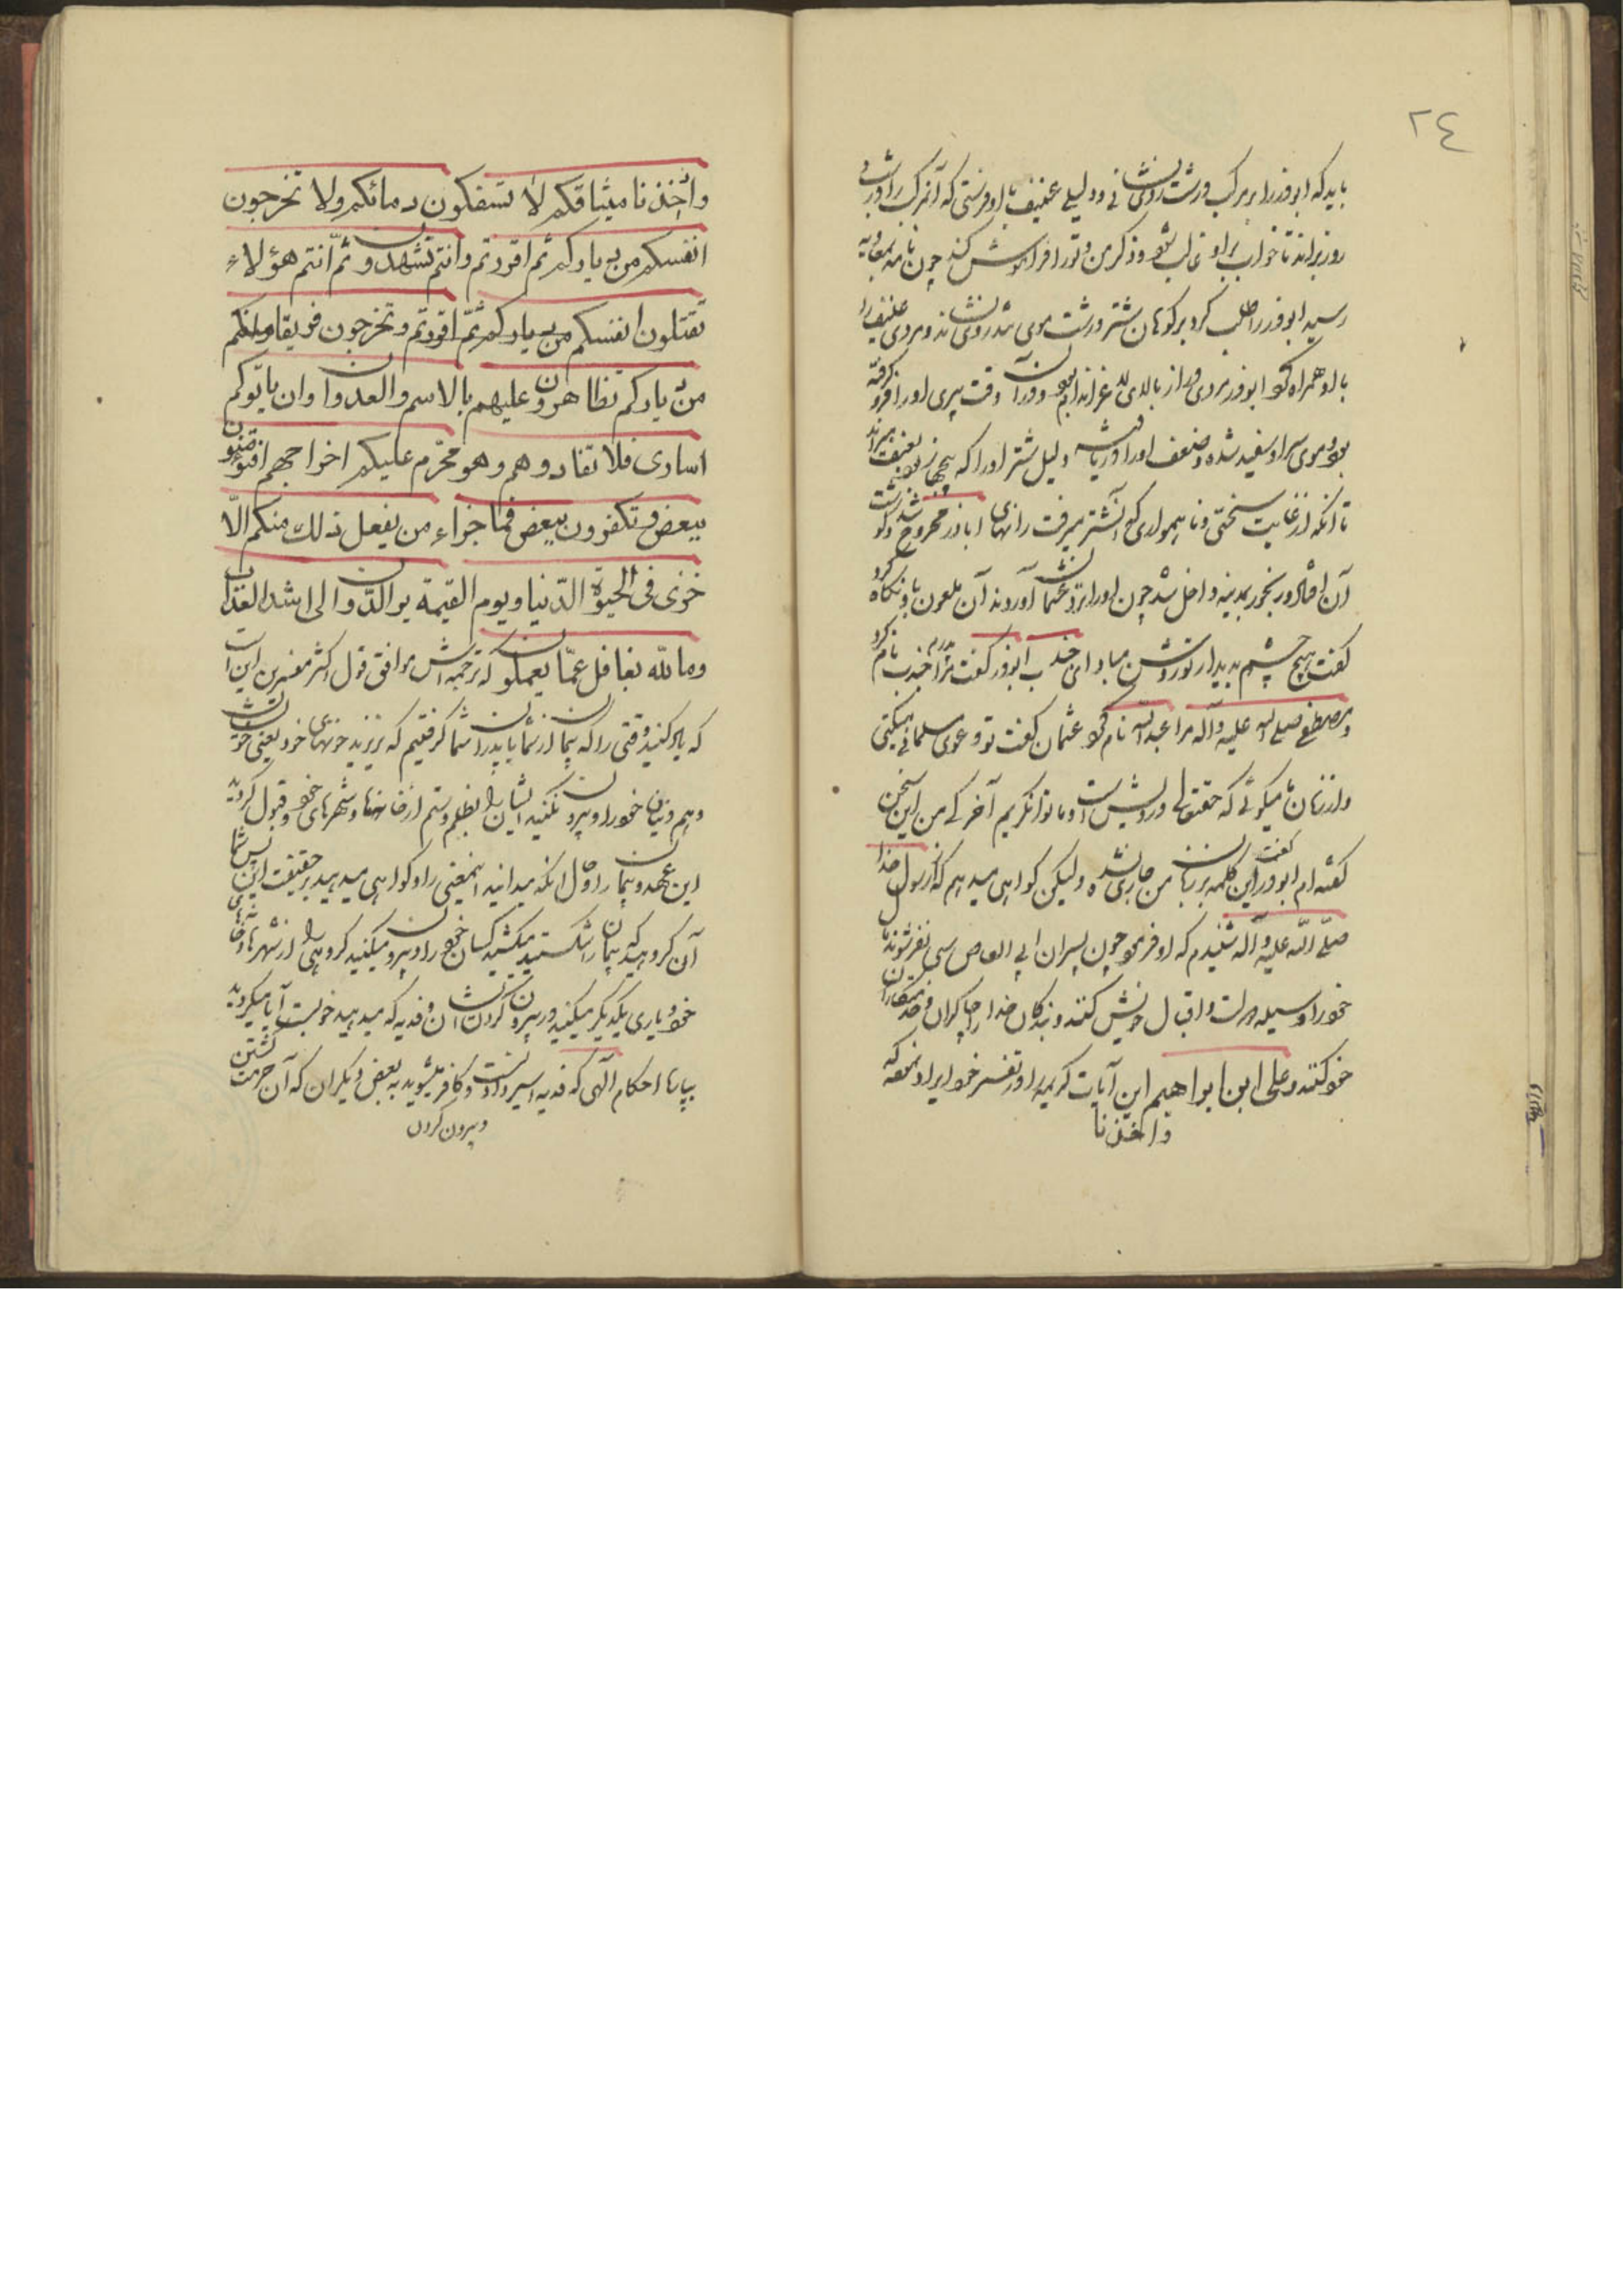 ٢٤
باید که ابوذر را بر مرکب درشت روی نشانی و دلیلی عنیف با او فرستی که آن مرکب را در شب و
روز براند تا خواب بر او غالب شود و ذکر من و تو را فراموش کند چون نامه بمعاویه
رسید ابوذر را طلب کرد بر کوهان شتر درشت موی تندروی نشاند و مردی عنیف را
با او همراه کرد ابوذر مردی دراز بالای لاغر اندام بود و در آن وقت پیری او را فرو گرفته
بود و موی سر او سفید شده و ضعف او را دریافته دلیل شتر او را که بی جهاز بود بعنف میراند
تا آنکه از غایت سختی و ناهمواری که آن شتر میرفت رانهای اباذر مجروح شد و گوشت
آن افتاد و رنجور بمدینه داخل شد چون او را نزد عثمان آوردند آن ملعون باو نگاه کرد
گفت هیچ چشم بدیدار تو روشن مباد ای جندب ابوذر گفت مرا پدرم جندب نام کرد
و مصطفی صلی الله علیه و آله مرا عبد الله نام کرد عثمان گفت تو دعوی مسلمانی میکنی
و از زبان ما میگوئی که حقتعالی درویش است و ما توانگریم آخر کی من این سخن
گفته ام ابوذر گفت این کلمه بر زبان من جاری نشده ولیکن گواهی میدهم که از رسول خدا
صلّی اللّه علیه و آله شنیدم که او فرمود چون پسران ابی العاص سی نفر شوند مال
خدا را وسیله دولت و اقبال خویش کنند و بندگان خدا را چاکران و خدمتکاران
خود کنند و علی ابن ابراهیم این آیات کریمه را در تفسیر خود ایراد نموده که
واخذنا
واخذنا میثاقکم لا تسفکون دمائکم ولا تخرجون
انفسکم من دیارکم ثم اقررتم وانتم تشهدون ثمّ انتم هؤلاء
تقتلون انفسکم من دیارکم ثمّ اقررتم وتخرجون فریقا منکم
من دیارکم تظاهرون علیهم بالاسم والعدوان وان یاتوکم
اساری فلا تفادوهم وهو محرّم علیکم اخراجهم افتؤمنون
ببعض وتکفرون ببعض فما جزاء من یفعل ذلک منکم الّا
خزی فی الحیوة الدّنیا ویوم القیمة یردّون الی اشد العذاب
وما الله بغافل عمّا یعملون که ترجمه اش موافق قول اکثر مفسرین این است
که یاد کنید وقتی را که پیمان از شما یا پدران شما گرفتیم که نریزید خونهای خود یعنی خویشان
و هم دینان خود را و بیرون نکنید ایشان را بظلم و ستم از خانها و شهرهای خود و قبول کردید
این عهد و پیمان را و حال آنکه میدانید اینمعنی را و گواهی میدهید بر حقیقت این پس شما
آن گروهید که پیمان را شکستید میکشید کسان خود را و بیرون میکنید گروهی را از شهرها و خانهای
خود و یاری یکدیگر میکنید در بیرون کردن ایشان و فدیه که میدهید خوبست آیا میگروید
بپاره احکام الهی که فدیه اسیر دادنست و کافر میشوید به بعض دیگر آن که آن حرمت کشتن
و بیرون کردن